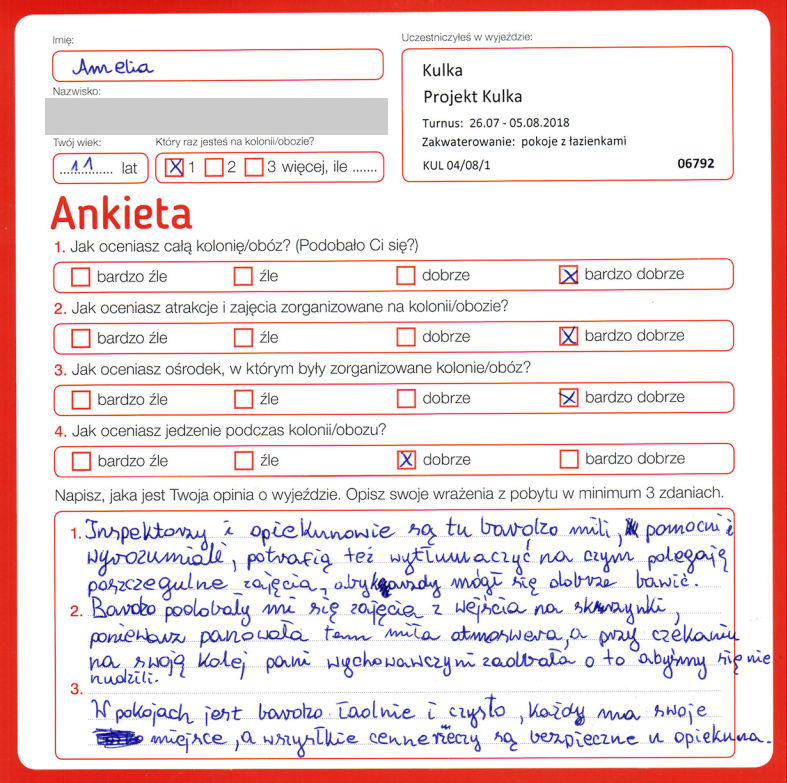 Imię:
Amelia
Nazwisko:
Twój wiek:
11 lat
Który raz jesteś na kolonii/obozie?
X 1 2 3 więcej, ile .......
Uczestniczyłeś w wyjeździe:
Kulka
Projekt Kulka
Turnus: 26.07 - 05.08.2018
Zakwaterowanie: pokoje z łazienkami
KUL 04/08/1 06792
Ankieta
1. Jak oceniasz całą kolonię/obóz? (Podobało Ci się?)
bardzo źle źle dobrze X bardzo dobrze
2. Jak oceniasz atrakcje i zajęcia zorganizowane na kolonii/obozie?
bardzo źle źle dobrze X bardzo dobrze
3. Jak oceniasz ośrodek, w którym były zorganizowane kolonie/obóz?
bardzo źle źle dobrze X bardzo dobrze
4. Jak oceniasz jedzenie podczas kolonii/obozu?
bardzo źle źle X dobrze bardzo dobrze
Napisz, jaka jest Twoja opinia o wyjeździe. Opisz swoje wrażenia z pobytu w minimum 3 zdaniach.
1. Inspektorzy i opiekunowie są tu bardzo mili, pomocni i
wyrozumiali, potrafią też wytłumaczyć na czym polegają
poszczegulne zajęcia, aby każdy mógł się dobrze bawić.
2. Bardzo podobały mi się zajęcia z wejścia na skrzynki,
poniewarz panowała tam miła atmoswera, a przy czekaniu
na swoją kolej pani wychowawczyni zadbała o to abyśmy się nie
nudzili.
3.
W pokojach jest bardzo ładnie i czysto, każdy ma swoje
miejsce, a wszystkie cenne rzeczy są bezpieczne u opiekuna.